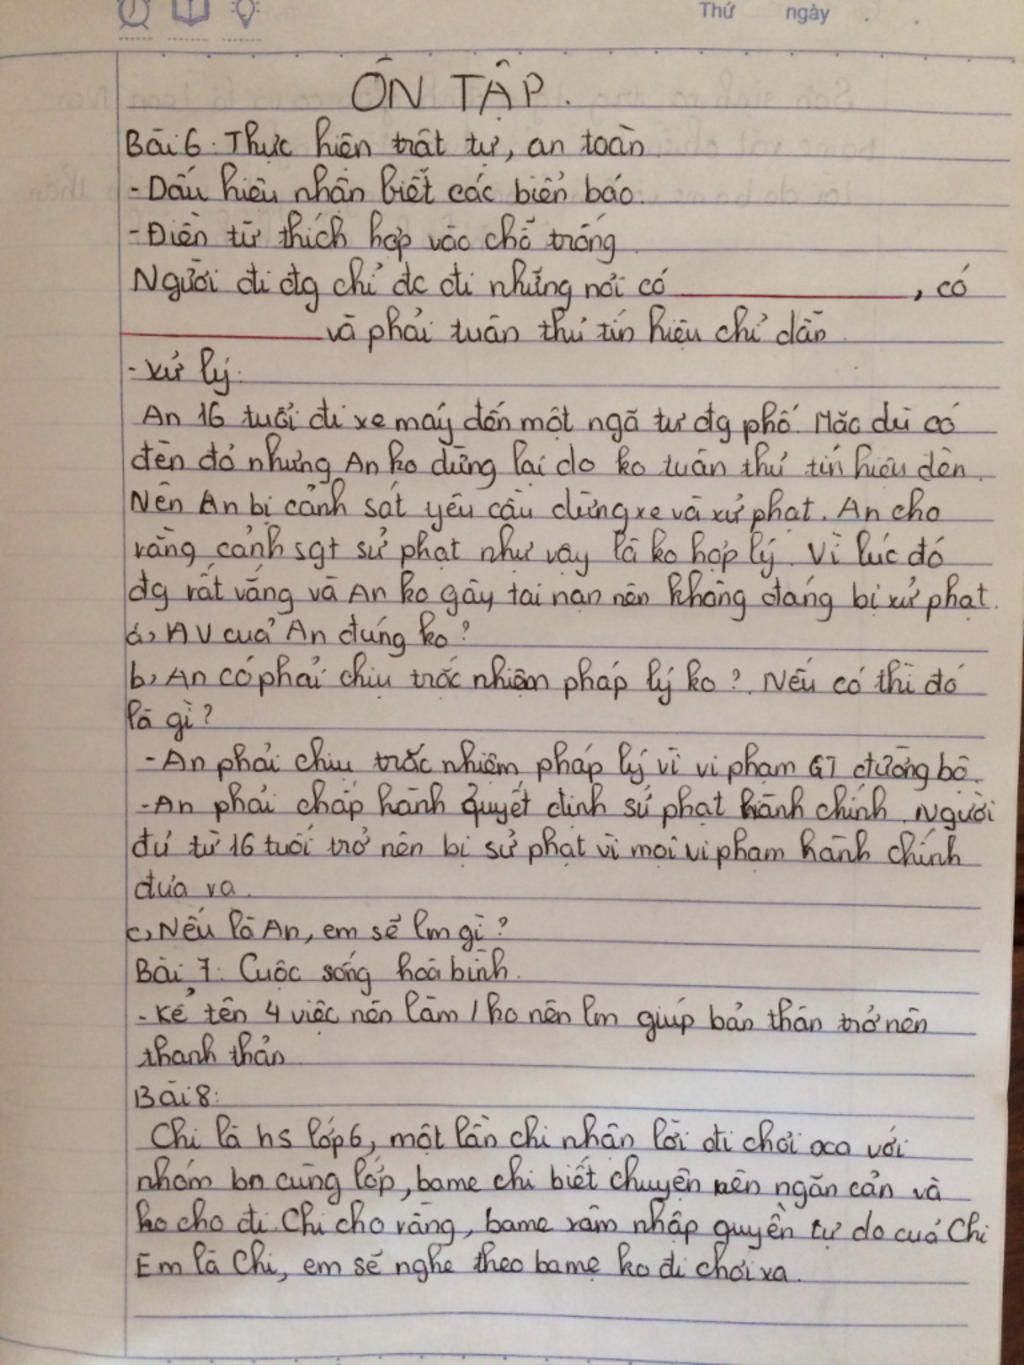 Thứ ngày . .
ÔN TẬP.
Bài 6: Thực hiện trật tự, an toàn
- Dấu hiệu nhận biết các biển báo.
- Điền từ thích hợp vào chỗ trống
Người đi đg chỉ đc đi những nơi có ____________, có
____________ và phải tuân thủ tín hiệu chỉ dẫn
- Xử lý:
An 16 tuổi đi xe máy đến một ngã tư đg phố. Mặc dù có
đèn đỏ nhưng An ko dừng lại do ko tuân thủ tín hiệu đèn.
Nên An bị cảnh sát yêu cầu dừng xe và xử phạt. An cho
rằng cảnh sgt sử phạt như vậy là ko hợp lý. Vì lúc đó
đg rất vắng và An ko gây tai nạn nên không đáng bị xử phạt.
a, HV cuả An đúng ko?
b, An có phải chịu trác nhiệm pháp lý ko? Nếu có thì đó
là gì?
- An phải chịu trác nhiệm pháp lý vì vi phạm GT đường bộ.
- An phải chấp hành quyết định sử phạt hành chính. Người
đủ từ 16 tuổi trở nên bị sử phạt vì mọi vi phạm hành chính
đưa ra.
c, Nếu là An, em sẽ lm gì?
Bài 7: Cuộc sống hoà bình.
- Kể tên 4 việc nên làm / ko nên lm giúp bản thân trở nên
thanh thản
Bài 8:
Chi là hs lớp 6, một lần chi nhận lời đi chơi xa với
nhóm bn cùng lớp, bame chi biết chuyện nên ngăn cản và
ko cho đi. Chi cho rằng, bame xâm nhập quyền tự do cuả Chi
Em là Chi, em sẽ nghe theo bame ko đi chơi xa.